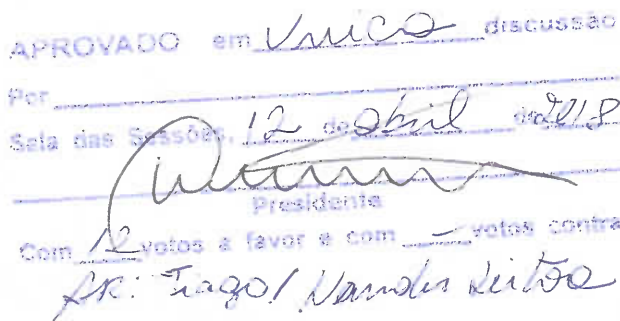 APROVADO em Unica discussão
Por
Sala das Sessões, 12 de abril de 2018
Presidente
Com 12 votos a favor e com - votos contra
Tiago / Leitão